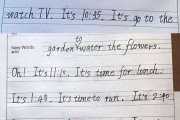 watch TV. It's 10:35. It's go to the
to
New Words
garden water the flowers.
Oh! It's 11:15. It's time for lunch.
It's 1:40. It's time to run. It's 2:40